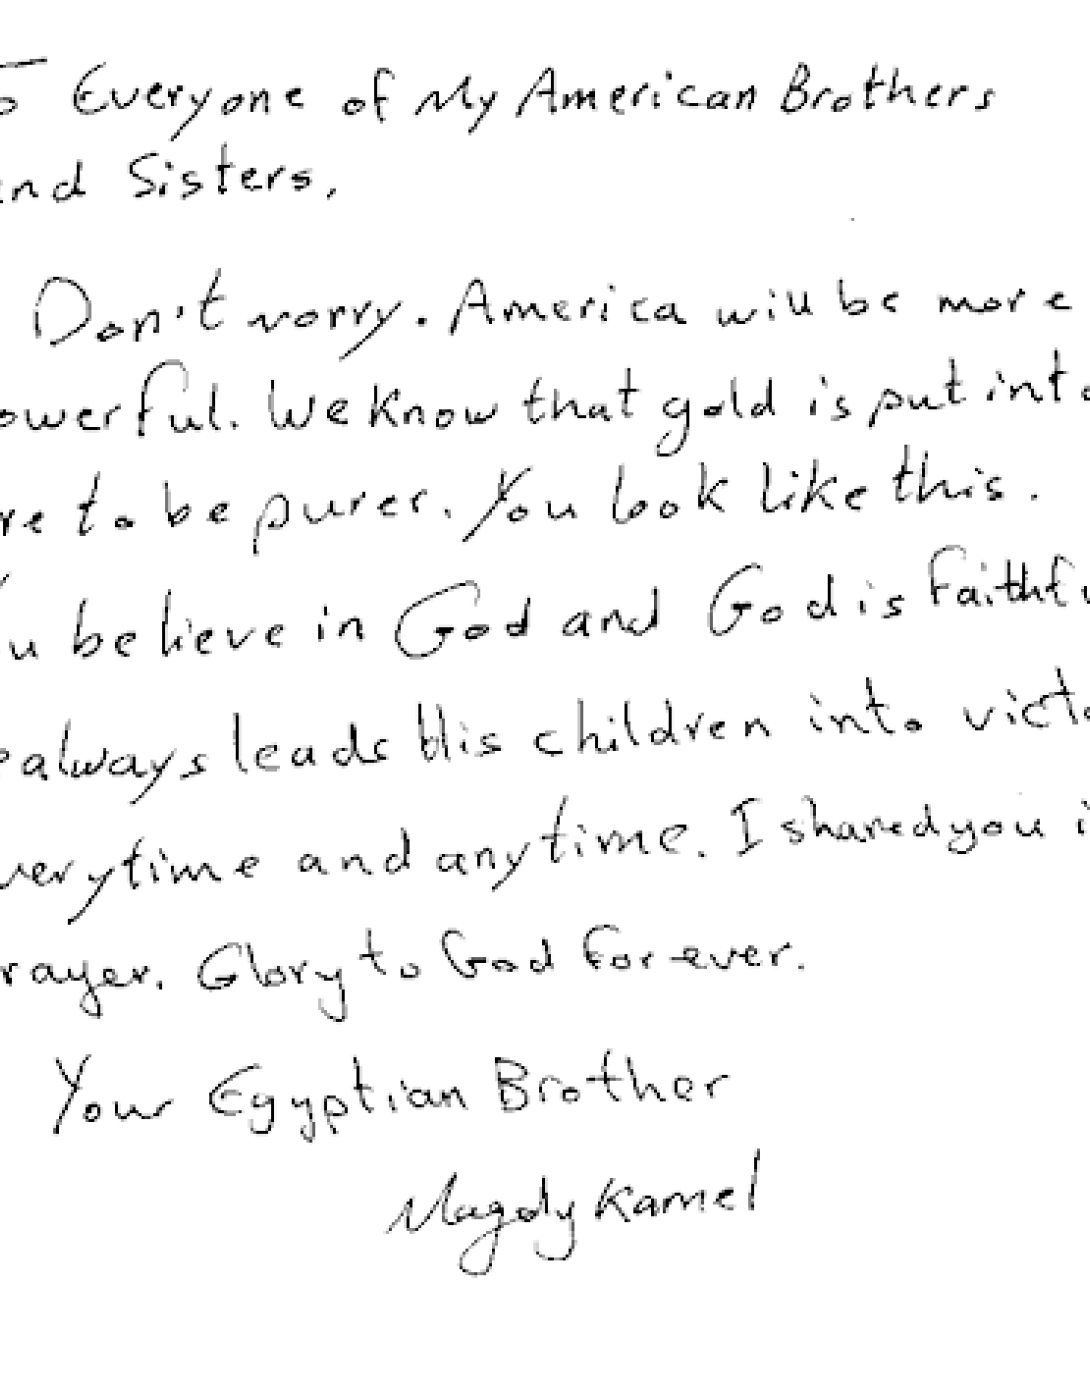 To Everyone of My American Brothers
and Sisters,
Don't worry. America will be more
powerful. We Know that gold is put into
fire to be purer. You look like this.
You believe in God and God is faithful
He always leads His children into victory
everytime and anytime. I shared you in
prayer. Glory to God for ever.
Your Egyptian Brother
Magdy Kamel